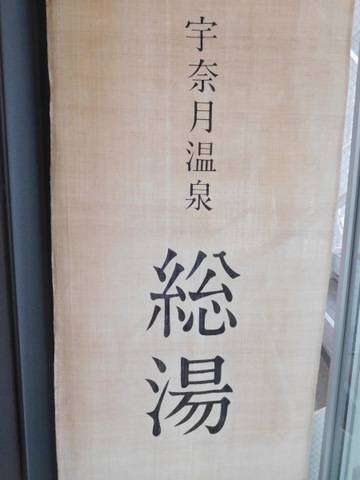 宇奈月温泉
総湯